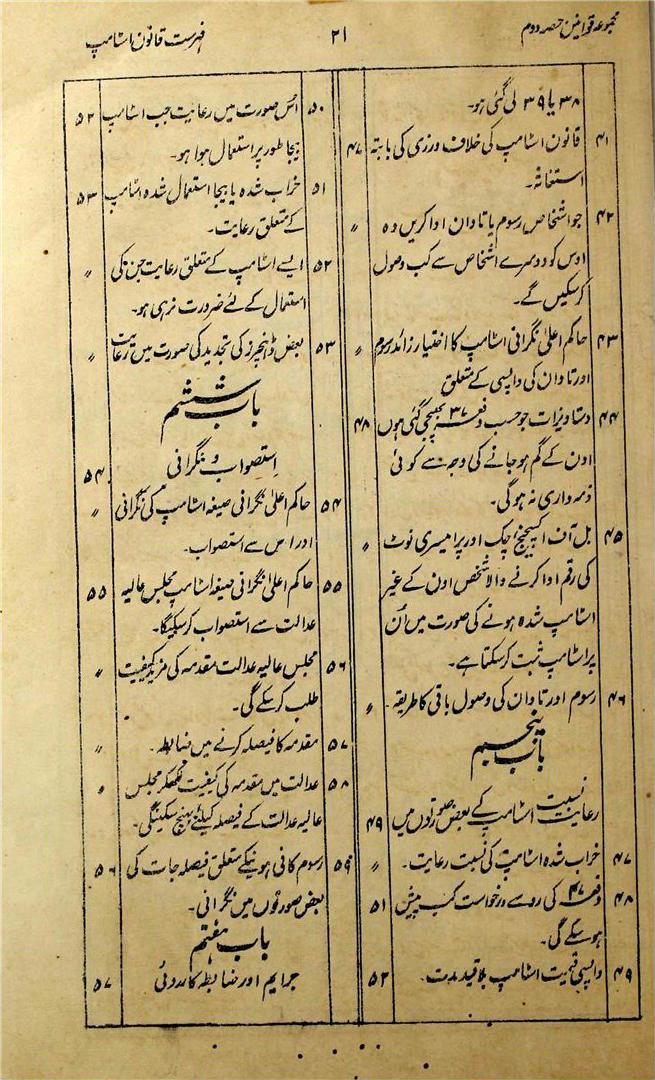 مجموعہ قوانین حصہ دوم
۲۱
فہرست قانون اسٹامپ
۳۸ یا ۳۹ لی گئی ہو۔
۴۱ قانون اسٹامپ کی خلاف ورزی کی بابتہ ۴۷
استغاثہ۔
۴۲ جو اشخاص رسوم یا تاوان ادا کریں وہ 〃
اوس کو دوسرے اشخاص سے کب وصول
کر سکیں گے۔
۴۳ حاکم اعلیٰ نگرانی اسٹامپ کا اختیار زائد رسوم 〃
اور تاوان کی واپسی کے متعلق
۴۴ دستاویزات جو حسب دفعہ ۳۷ بھیجی گئی ہوں ۴۸
اون کے گم ہو جانے کی وجہ سے کوئی
ذمہ داری نہ ہوگی۔
۴۵ بل آف اکسچینج چک اور پرامیسری نوٹ 〃
کی رقم ادا کرنے والا شخص اون کے غیر
اسٹامپ شدہ ہونے کی صورت میں اُن
پر اسٹامپ ثبت کر سکتا ہے۔
۴۶ رسوم اور تاوان کی وصول باقی کا طریقہ۔ 〃
باب پنجم
رعایت نسبت اسٹامپ کے بعض صورتوں میں ۴۹
۴۷ خراب شدہ اسٹامپ کی نسبت رعایت۔ 〃
۴۸ دفعہ ۴۷ کی رو سے درخواست کب پیش ۵۱
ہو سکے گی۔
۴۹ واپسی قیمت اسٹامپ بلا قید مدت۔ ۵۲
۵۰ اس صورت میں رعایت جب اسٹامپ ۵۲
بیجا طور پر استعمال ہوا ہو۔
۵۱ خراب شدہ یا بیجا استعمال شدہ اسٹامپ ۵۳
کے متعلق رعایت۔
۵۲ ایسے اسٹامپ کے متعلق رعایت جن کی 〃
استعمال کے لئے ضرورت نرہی ہو۔
۵۳ بعض ڈبنچرز کی تجدید کی صورت میں رعایت 〃
باب ششم
استصواب و نگرانی ۵۴
۵۴ حاکم اعلیٰ نگرانی صیغہ اسٹامپ کی نگرانی 〃
اور اس سے استصواب۔
۵۵ حاکم اعلیٰ نگرانی صیغہ اسٹامپ مجلس عالیہ ۵۵
عدالت سے استصواب کر سکیگا۔
۵۶ مجلس عالیہ عدالت مقدمہ کی مزید کیفیت 〃
طلب کر سکے گی۔
۵۷ مقدمہ کا فیصلہ کرنے میں ضابطہ۔ 〃
۵۸ عدالت میں مقدمہ کی کیفیت لکھکر مجلس 〃
عالیہ عدالت کے فیصلہ کیلئے بھیج سکینگی۔
۵۹ رسوم کافی ہونیکے متعلق فیصلہ جات کی ۵۶
بعض صورتوں میں نگرانی۔
باب ہفتم
جرایم اور ضابطہ کارروائی ۵۷